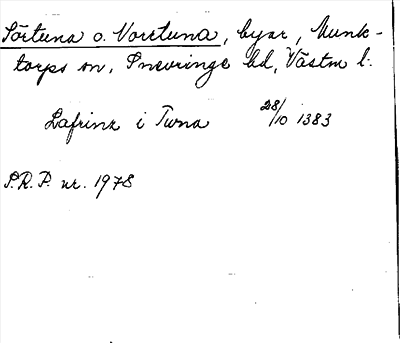 Sörtuna o. Norrtuna, byar, Munk-
torps sn, Snevringe hd, Västm l:
Lafrinz i Twna 28/10 1383
S.R.P. nr. 1978